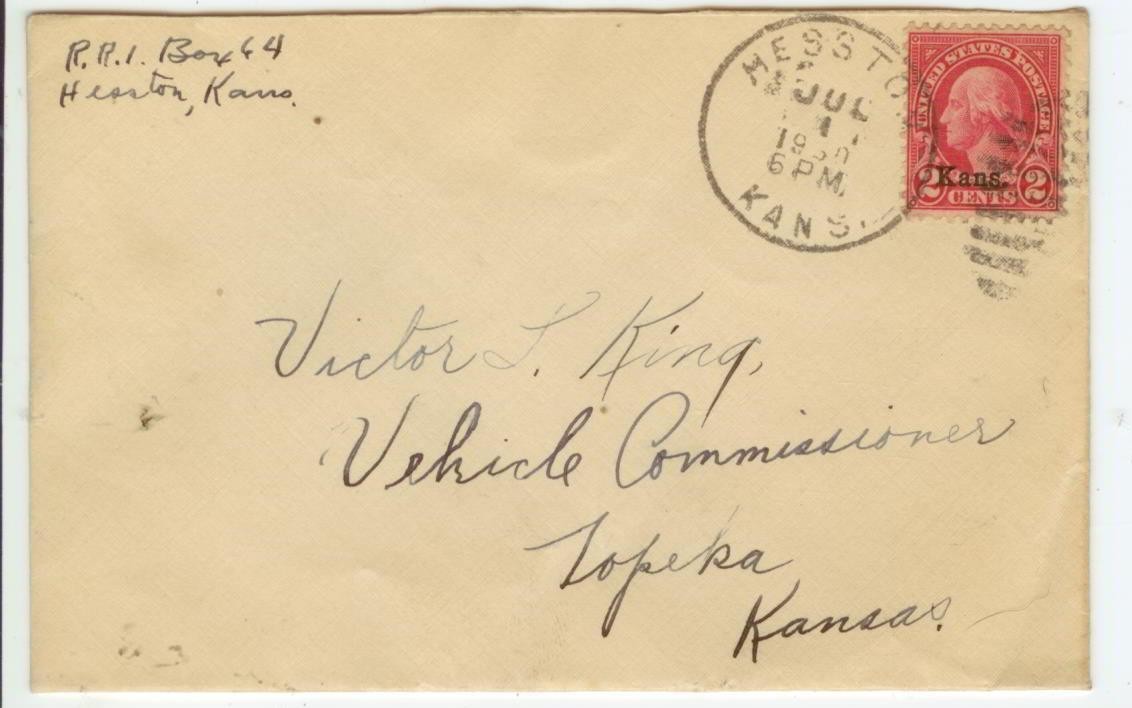 R.R.1. Box 64
Hesston, Kans.
HESSTO
JUL
1
6 PM.
KANS.
UNITED STATES POSTAGE
Kans.
2 CENTS 2
Victor L. King,
Vehicle Commissioner
Topeka
Kansas.